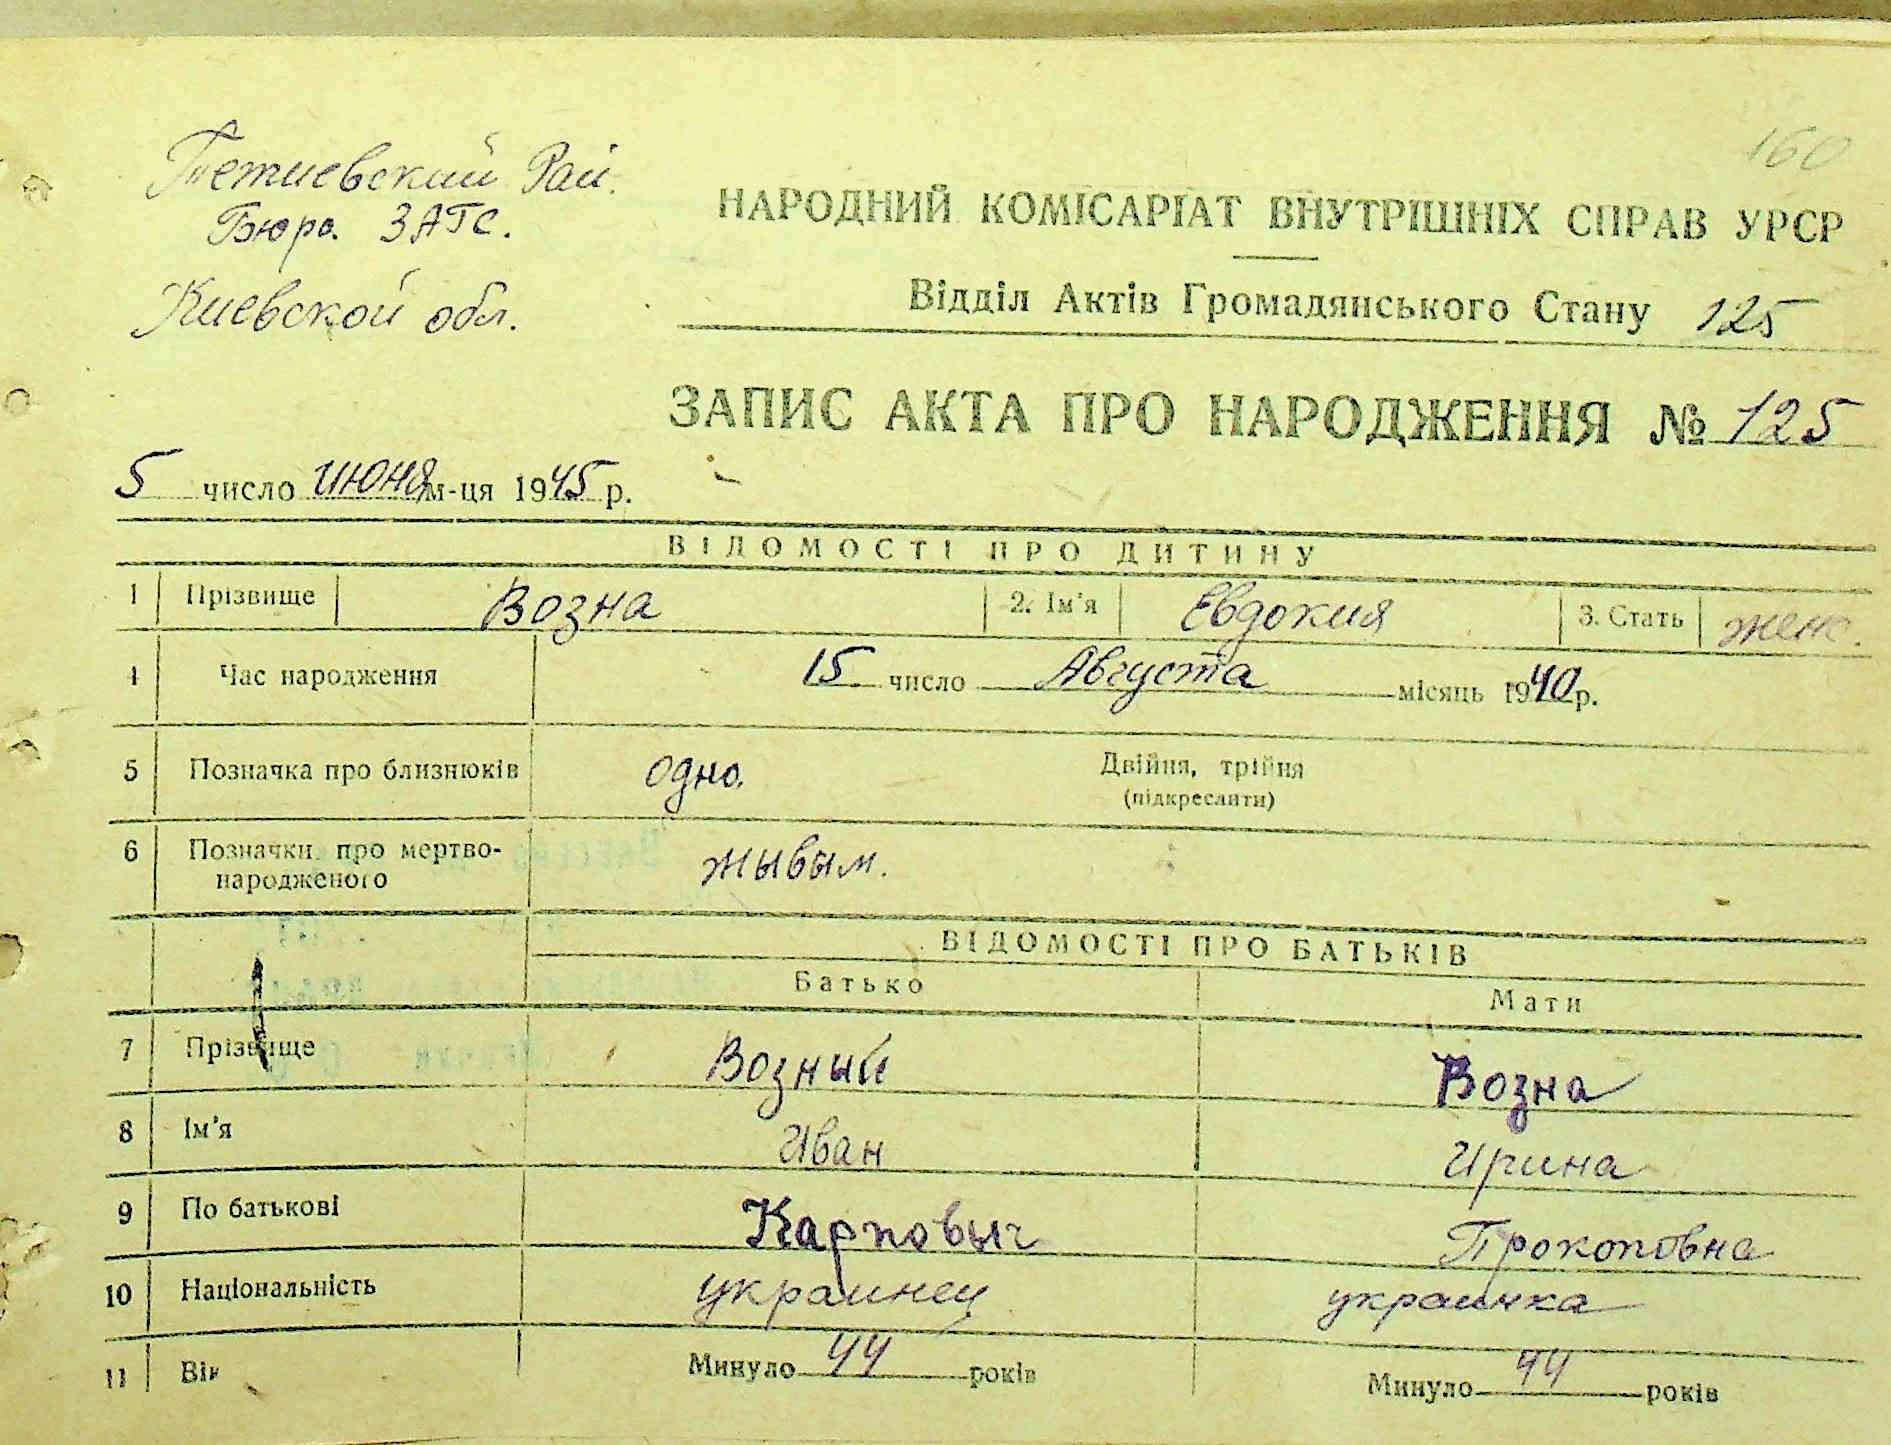 160
Тетиевский Рай.
Бюро. ЗАГС.
Киевской обл.
НАРОДНИЙ КОМІСАРІАТ ВНУТРІШНІХ СПРАВ УРСР
Відділ Актів Громадянського Стану 125
ЗАПИС АКТА ПРО НАРОДЖЕННЯ № 125
5 число июня м-ця 1945 р.
ВІДОМОСТІ ПРО ДИТИНУ
1 Прізвище Возна 2. Ім'я Евдокия 3. Стать женс.
4 Час народження 15 число Августа місяць 1940 р.
5 Позначка про близнюків одно. Двійня, трійня
(підкреслити)
6 Позначки про мертво-
народженого жывым.
ВІДОМОСТІ ПРО БАТЬКІВ
Батько Мати
7 Прізвище Возный Возна
8 Ім'я Иван Ирина
9 По батькові Карповыч Прокоповна
10 Національність украинец украинка
11 Вік Минуло 44 років Минуло 44 років